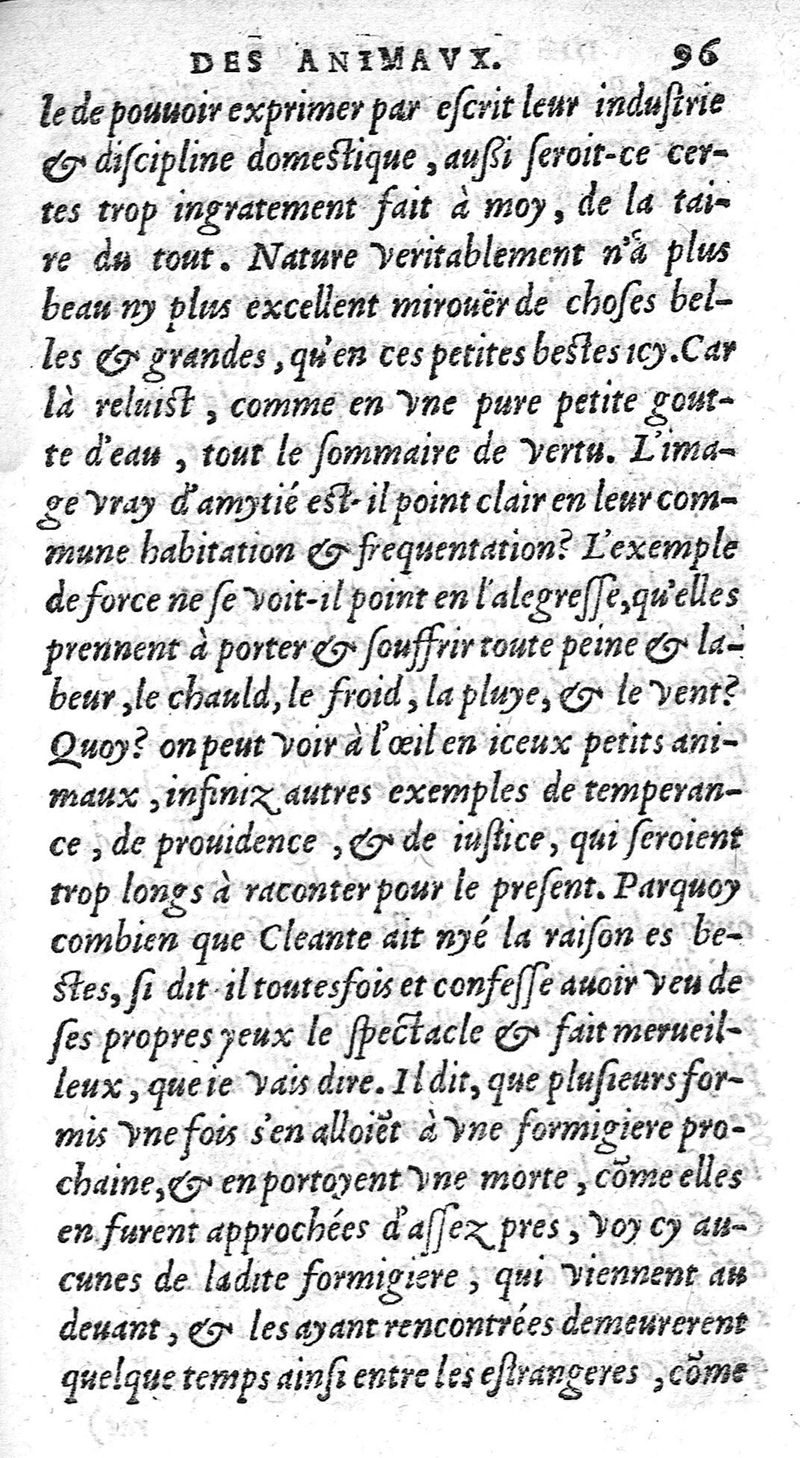 DES ANIMAVX. 96
le de pouuoir exprimer par eſcrit leur induſtrie
& diſcipline domeſtique, außi ſeroit-ce cer-
tes trop ingratement fait à moy, de la tai-
re du tout. Nature veritablement n'à plus
beau ny plus excellent mirouër de choſes bel-
les & grandes, qu'en ces petites beſtes icy. Car
là reluiſt, comme en vne pure petite gout-
te d'eau, tout le ſommaire de vertu. L'ima-
ge vray d'amytié eſt-il point clair en leur com-
mune habitation & frequentation? L'exemple
de force ne ſe voit-il point en l'alegreſſe, qu'elles
prennent à porter & ſouffrir toute peine & la-
beur, le chauld, le froid, la pluye, & le vent?
Quoy? on peut voir à l'œil en iceux petits ani-
maux, infiniz autres exemples de temperan-
ce, de prouidence, & de iuſtice, qui ſeroient
trop longs à raconter pour le preſent. Parquoy
combien que Cleante ait nyé la raiſon es be-
ſtes, ſi dit-il toutesfois et confeſſe auoir veu de
ſes propres yeux le ſpectacle & fait merueil-
leux, que ie vais dire. Il dit, que pluſieurs for-
mis vne fois s'en alloiẽt à vne formigiere pro-
chaine, & en portoyent vne morte, cõme elles
en furent approchées d'aſſez pres, voy cy au-
cunes de ladite formigiere, qui viennent au
deuant, & les ayant rencontrées demeurerent
quelque temps ainſi entre les eſtrangeres, cõme